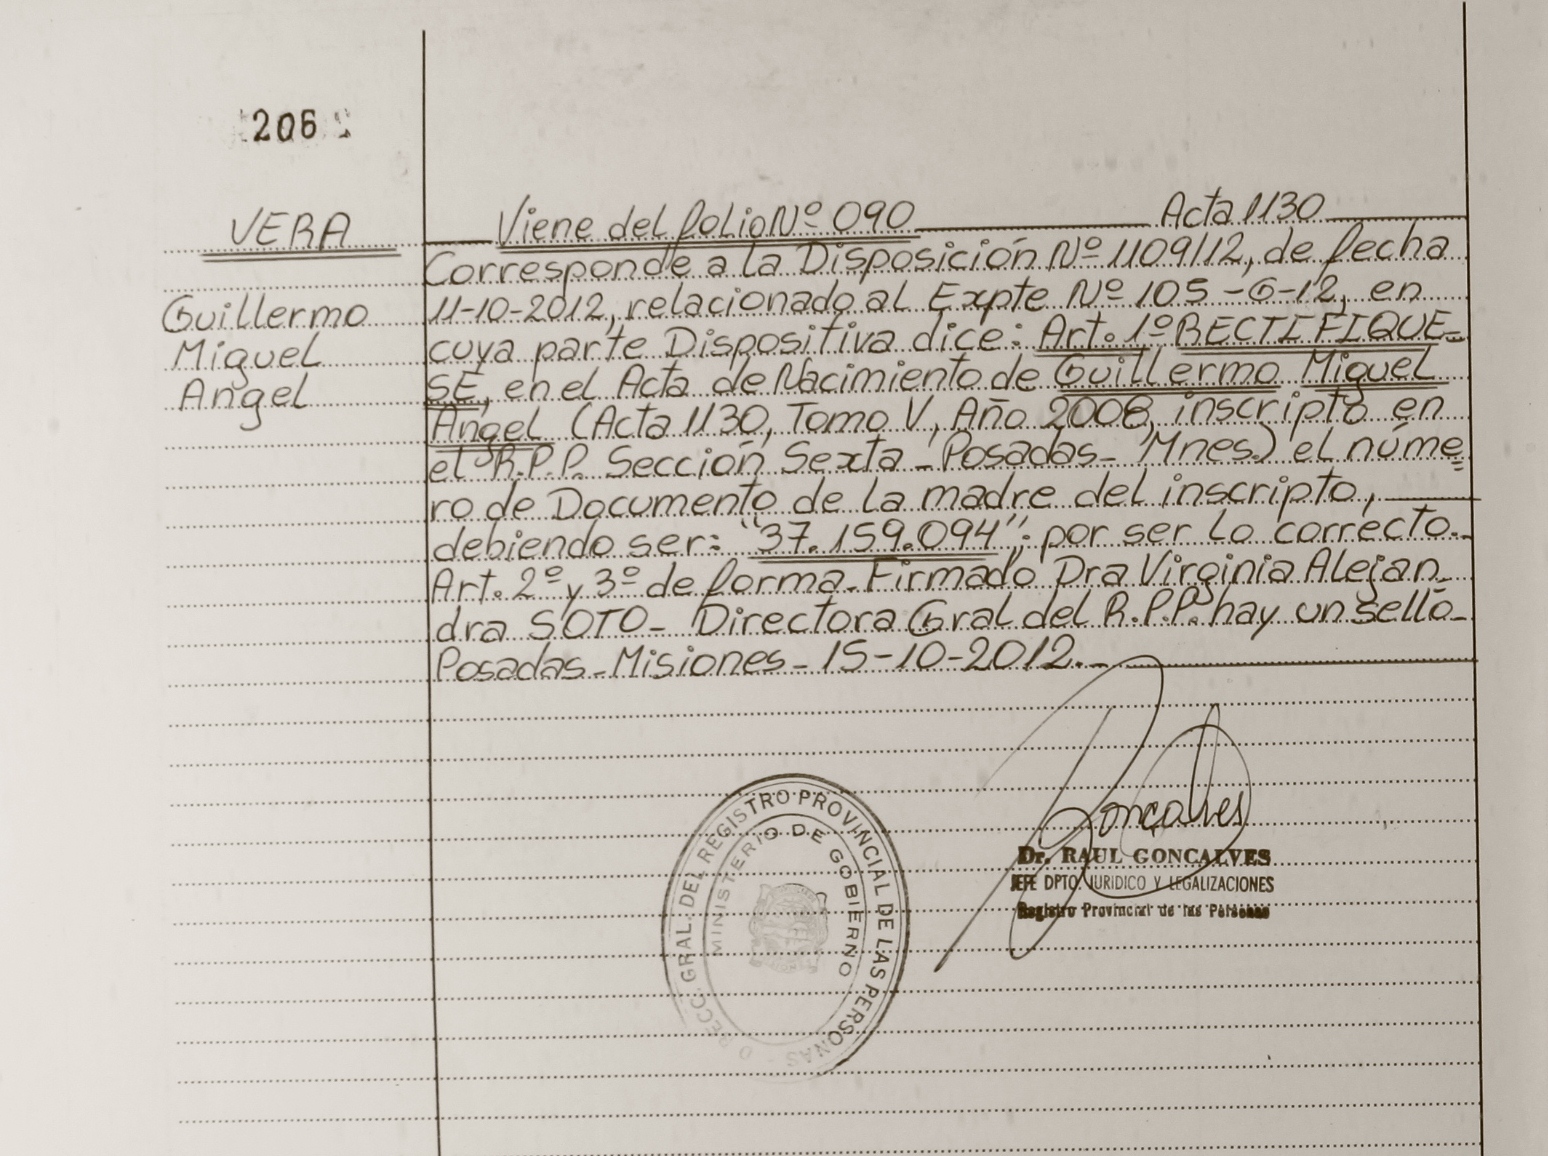 206
VERA
Guillermo
Miguel
Angel
Viene del folio Nº 090 Acta 1130
Corresponde a la Disposición Nº 1109/12, de fecha
11-10-2012, relacionado al Expte Nº 105-G-12, en
cuya parte Dispositiva dice: Art. 1º RECTIFIQUE-
SE, en el Acta de Nacimiento de Guillermo Miguel
Angel (Acta 1130, Tomo V, Año 2008, inscripto en
el R.P.P. Sección Sexta - Posadas - Mnes.) el núme
ro de Documento de la madre del inscripto,
debiendo ser: "37.159.094"; por ser lo correcto.-
Art. 2º y 3º de forma - Firmado Dra Virginia Alejan
dra SOTO - Directora Gral del R.P.P. hay un sello -
Posadas - Misiones - 15-10-2012.-
DIRECC. GRAL. DEL REGISTRO PROVINCIAL DE LAS PERSONAS
MINISTERIO DE GOBIERNO
Goncalves
Dr. RAUL GONCALVES
JEFE DPTO. JURIDICO Y LEGALIZACIONES
Registro Provincial de las Personas